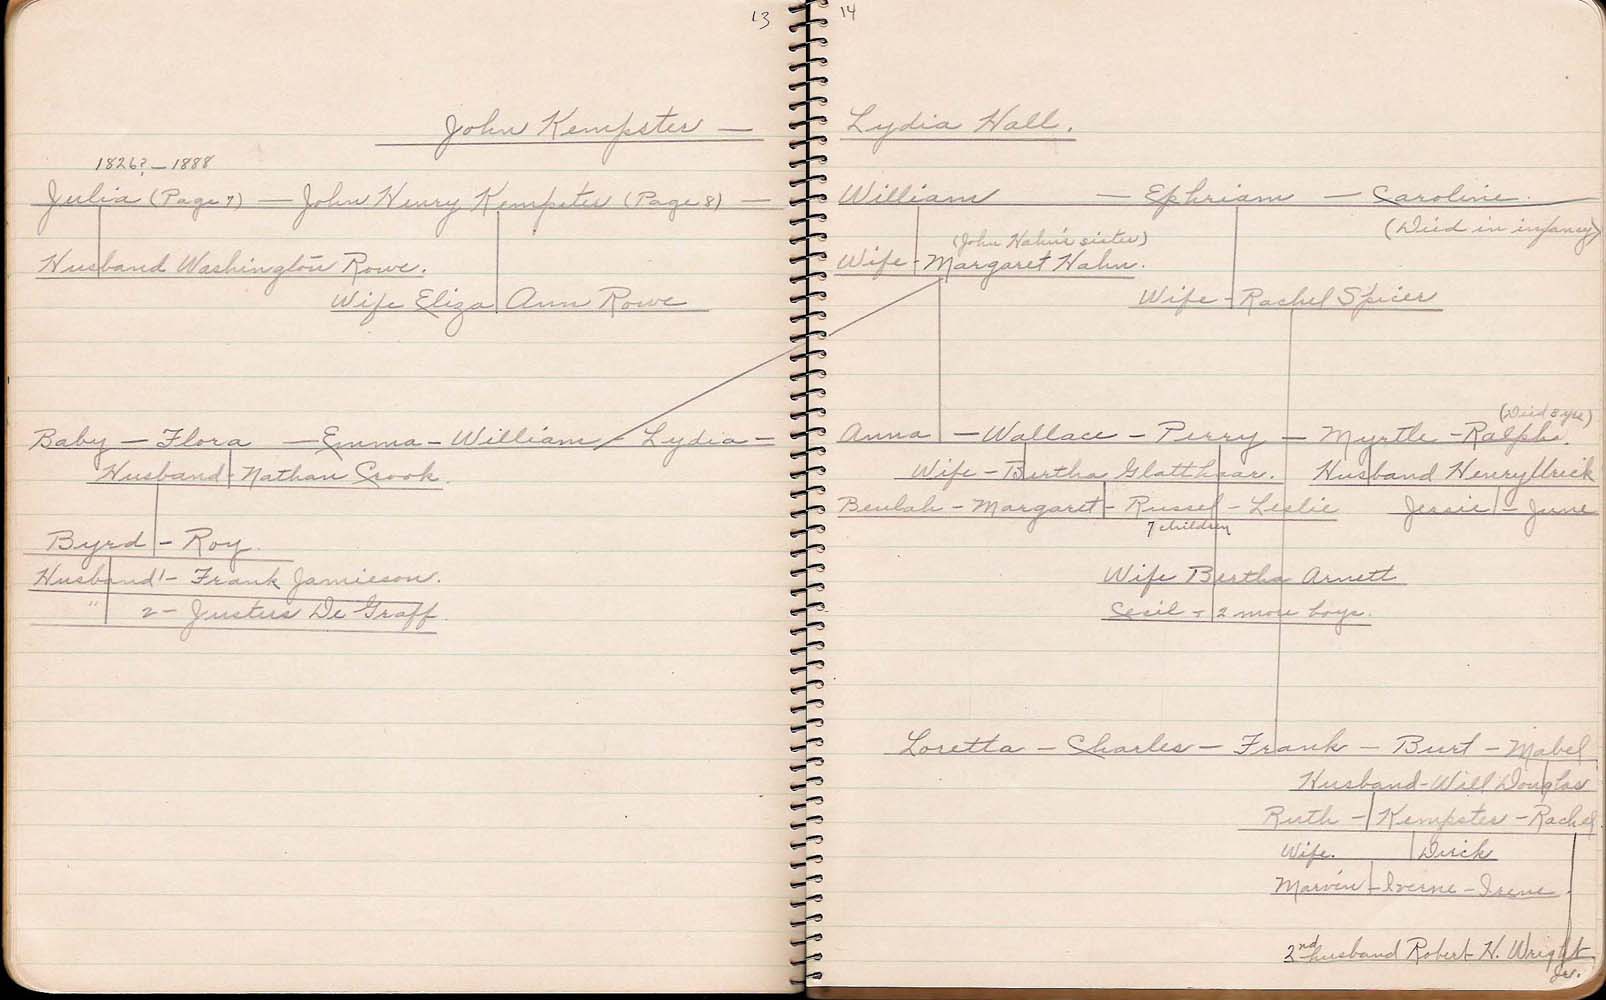 13
John Kempster —
1826? — 1888
Julia (Page 7) — John Henry Kempster (Page 8) —
Husband Washington Rowe.
Wife Eliza Ann Rowe
Baby — Flora — Emma — William — Lydia —
Husband - Nathan Crook.
Byrd - Roy.
Husband 1 - Frank Jamieson.
" 2 - Justus De Graff.
14
Lydia Hall.
William — Ephriam — Caroline.
(Died in infancy)
(John Hahn's sister)
Wife - Margaret Hahn.
Wife - Rachel Spicer
(Died 8 yrs)
Anna — Wallace — Perry — Myrtle - Ralph.
Wife - Bertha Glatthaar. Husband Henry Urick
Beulah - Margaret - Russel - Leslie Jessie - June
7 children
Wife Bertha Arnett
Cecil + 2 more boys.
Loretta — Charles — Frank — Burt — Mabel
Husband - Will Douglas
Ruth - Kempster - Rachel
Wife. Dirick
Marvin - Iverne - Irene.
2nd husband Robert H. Wright
Jr.